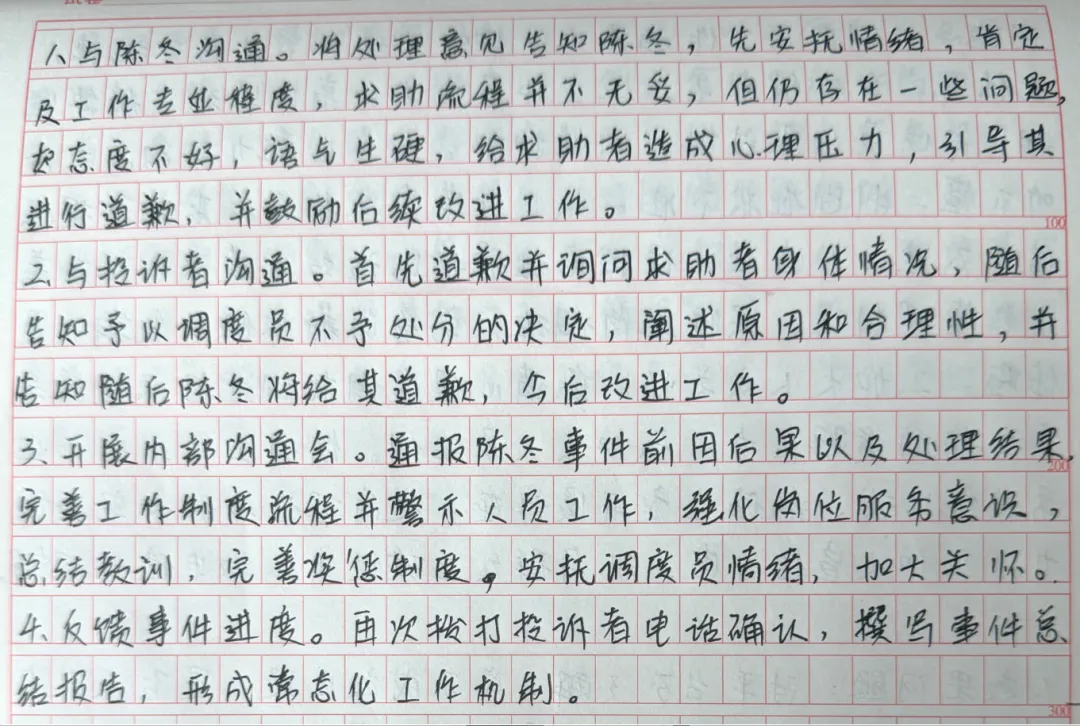 1、与陈冬沟通。将处理意见告知陈冬，先安抚情绪，肯定
及工作专业程度，求助流程并不无妥，但仍存在一些问题，
如态度不好，语气生硬，给求助者造成心理压力，引导其
进行道歉，并鼓励后续改进工作。
100
2、与投诉者沟通。首先道歉并询问求助者身体情况，随后
告知予以调度员不予处分的决定，阐述原因和合理性，并
告知随后陈冬将给其道歉，今后改进工作。
3、开展内部沟通会。通报陈冬事件前因后果以及处理结果，
200
完善工作制度流程并警示人员工作，强化岗位服务意识，
总结教训，完善奖惩制度。安抚调度员情绪，加大关怀。
4、反馈事件进度。再次拨打投诉者电话确认，撰写事件总
结报告，形成常态化工作机制。
300